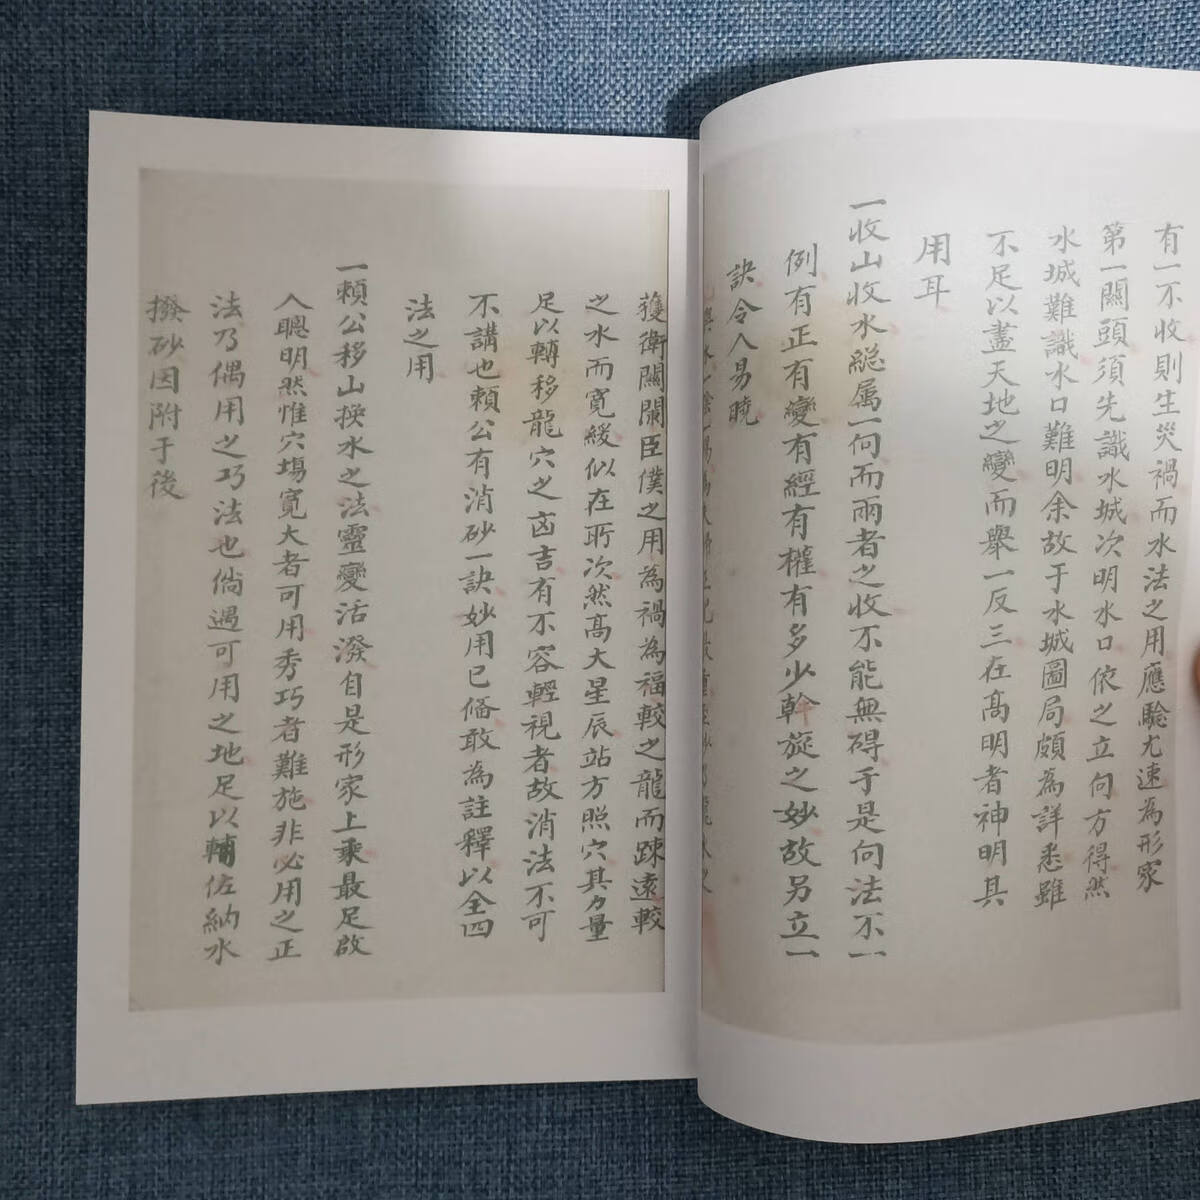 有一不收則生災禍而水法之用應騐尤速為形家
第一關頭須先識水城次明水口依之立向方得然
水城難識水口難明余故于水城圖局頗為詳悉雖
不足以盡天地之變而舉一反三在高明者神明其
用耳
一收山收水縂属一向而兩者之收不能無碍于是向法不一
例有正有變有經有權有多少幹旋之妙故另立一
訣令人易曉
護衛關闌臣僕之用為禍為福較之龍而踈遠較
之水而寬緩似在所次然高大星辰站方照穴其力量
足以轉移龍穴之凶吉有不容輕視者故消法不可
不講也賴公有消砂一訣妙用已俻敢為註釋以全四
法之用
一賴公移山換水之法靈變活潑自是形家上乘最足啟
人聰明然惟穴塲寬大者可用秀巧者難施非必用之正
法乃偶用之巧法也倘遇可用之地足以輔佐納水
撥砂因附于後